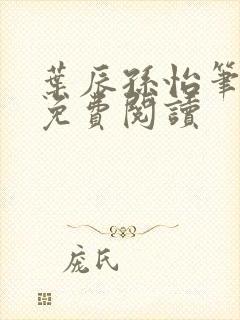 葉辰孫怡筆
免費閱讀
庞氏